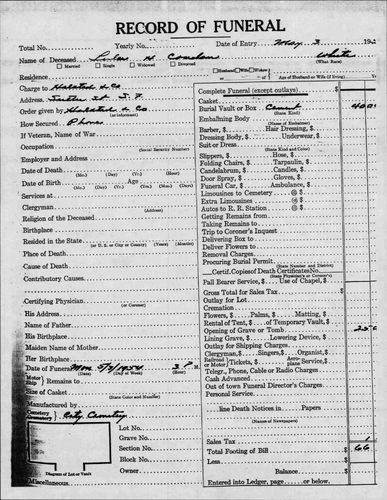 RECORD OF FUNERAL
Total No. Yearly No. Date of Entry May 3 19
Name of Deceased H White
Married Single Widowed Divorced (What Race)
Residence Husband Wife Widow Age of Husband or Wife (if living)
Charge to Halsted & Co
Address Sutter St S.F.
Order given by Halsted & Co
(or informant)
How Secured Phone
If Veteran, Name of War
Occupation
(Social Security Number)
Employer and Address
Date of Death
(Mo.) (Day) (Year) (Hour)
Date of Birth Age
(Mo.) (Day) (Year) (Yrs.) (Mo.) (Days)
Services at
Clergyman
(Address)
Religion of the Deceased
Birthplace
Resided in the State
(or U. S. or City or County) (Years) (Months)
Place of Death
Cause of Death
Contributory Causes
Certifying Physician
(or Coroner)
His Address
Name of Father
His Birthplace
Maiden Name of Mother
Her Birthplace
Date of Funeral Mon 5/3/1954 3 P M
(Date) (Day of Week) (Hour)
Motor Ship Remains to
Size of Casket
(State Color and Number)
Manufactured by
Cemetery Crematory City Cemetery
Lot No.
Grave No.
Section No.
Block No.
Owner
Diagram of Lot or Vault
Miscellaneous
Complete Funeral (except outlays)
Casket
Burial Vault or Box Cement
(State Kind)
Embalming Body
(Name of Embalmer)
Barber, Hair Dressing,
Dressing Body, Underwear,
Suit or Dress
(State Kind and Color)
Slippers, Hose,
Folding Chairs, Tarpaulin,
Candelabrum, Candles,
Door Spray, Gloves,
Funeral Car, Ambulance,
Limousines to Cemetery
Extra Limousines
Autos to R. R. Station
Getting Remains from
Taking Remains to
Trip to Coroner's Inquest
Delivering Box to
Deliver Flowers to
Removal Charges
Procuring Burial Permit
(State Number and District)
Certif. Copies of Death Certificates No.
(State Physician's or Coroner's)
Pall Bearer Service, Use of Chapel,
Gross Total for Sales Tax
Outlay for Lot
Cremation
Flowers, Palms, Matting,
Rental of Tent, of Temporary Vault,
Opening of Grave or Tomb
Lining Grave, Lowering Device,
Outlay for Shipping Charges
Clergyman, Singers, Organist,
Railroad or Motor Tickets, Aeroplane Service,
Telegr., Phone, Cable or Radio Charges
Cash Advanced
Out of town Funeral Director's Charges
Personal Service
line Death Notices in Papers
(Names of Newspapers)
Sales Tax 1
Total Footing of Bill 66
Less
Balance
Entered into Ledger, page or below.